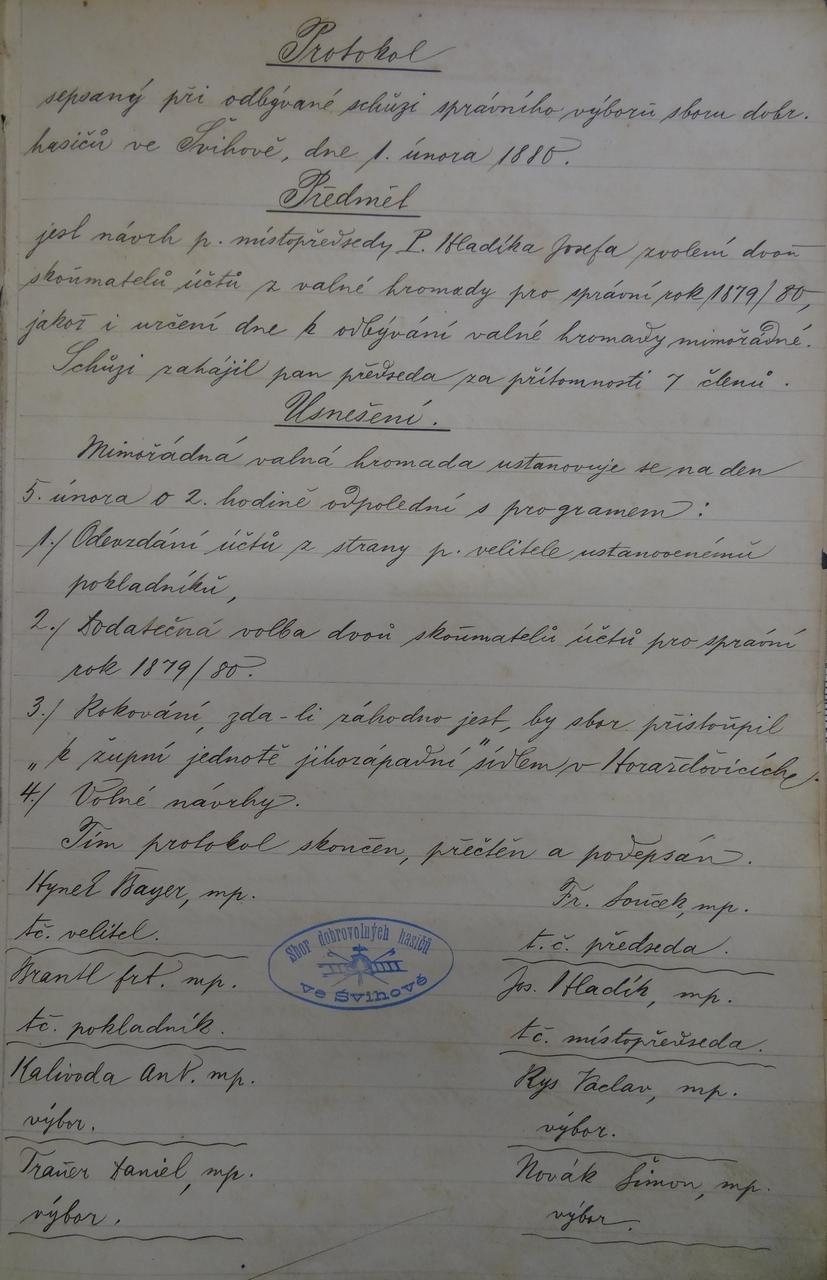 Protokol
sepsaný při odbývané schůzi správního výborů sboru dobr.
hasičů ve Švihově, dne 1. února 1880.
Předmět
jest návrh p. místopředsedy P. Hladíka Josefa zvolení dvoů
skoůmatelů účtů z valné hromady pro správní rok 1879/80,
jakož i určení dne k odbývání valné hromady mimořádné.
Schůzi zahájil pan předseda za přítomnosti 7 členů.
Usnešení.
Mimořádná valná hromada ustanovuje se na den
5. února o 2. hodině odpolední s programem:
1./ Odevzdání účtů z strany p. velitele ustanovenémů
pokladníků,
2./ Dodatečná volba dvoů skoůmatelů účtů pro správní
rok 1879/80.
3./ Rokování, zda-li záhodno jest, by sbor přistoůpil
„k župní jednotě jihozápadní" sídlem v Horažďovicích.
4./ Volné návrhy.
Tím protokol skončen, přečtěn a podepsán.
Hynek Bayer, mp.
tč. velitel.
Fr. Souček, mp.
t.č. předseda.
Sbor dobrovolných hasičů
ve Švihově
Brantl frt. mp.
tč. pokladník.
Jos. Hladík, mp.
tč. místopředseda.
Kalivoda Ant. mp.
výbor.
Rys Vaclav, mp.
výbor.
Traůer Daniel, mp.
výbor.
Novák Šimon, mp.
výbor.